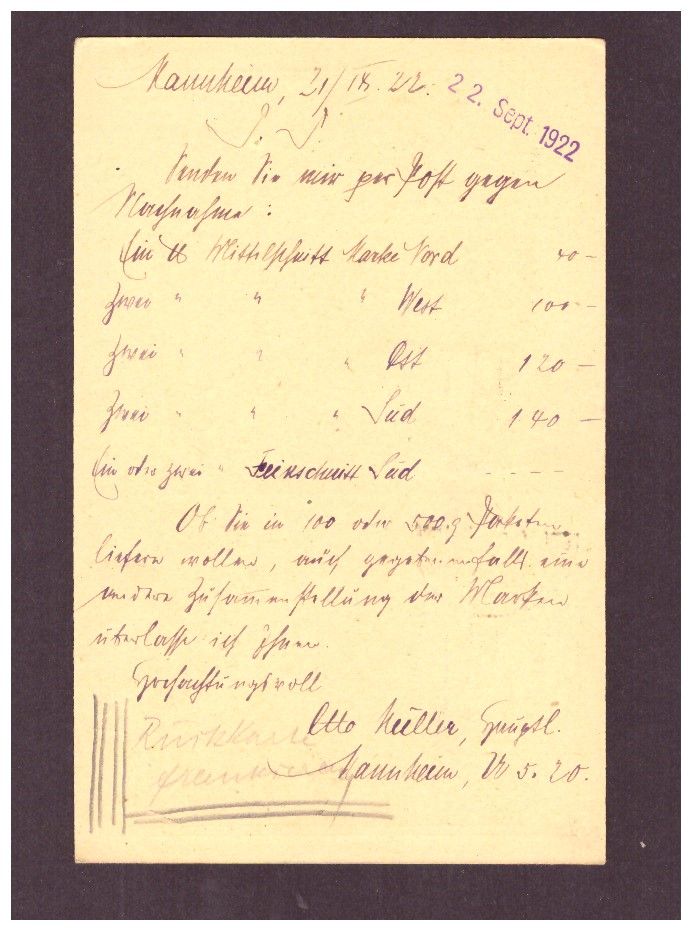 Mannheim, 21/IX. 22.
22. Sept. 1922
Senden Sie mir per Post gegen
Nachnahme:
Ein ℔ Mittelschnitt Marke Nord 40 –
Zwei " " " West 100 –
Zwei " " " Ost 120 –
Zwei " " " Süd 140 –
Ein oder zwei " Feinschnitt Süd - - - -
Ob Sie in 100 oder 500 g Paketen
liefern wollen, auch gegebenenfalls eine
andere Zusammenstellung der Marken
überlasse ich Ihnen.
Hochachtungsvoll
Otto Müller, Hauptl.
Mannheim, U 5. 20.
Rückkarte